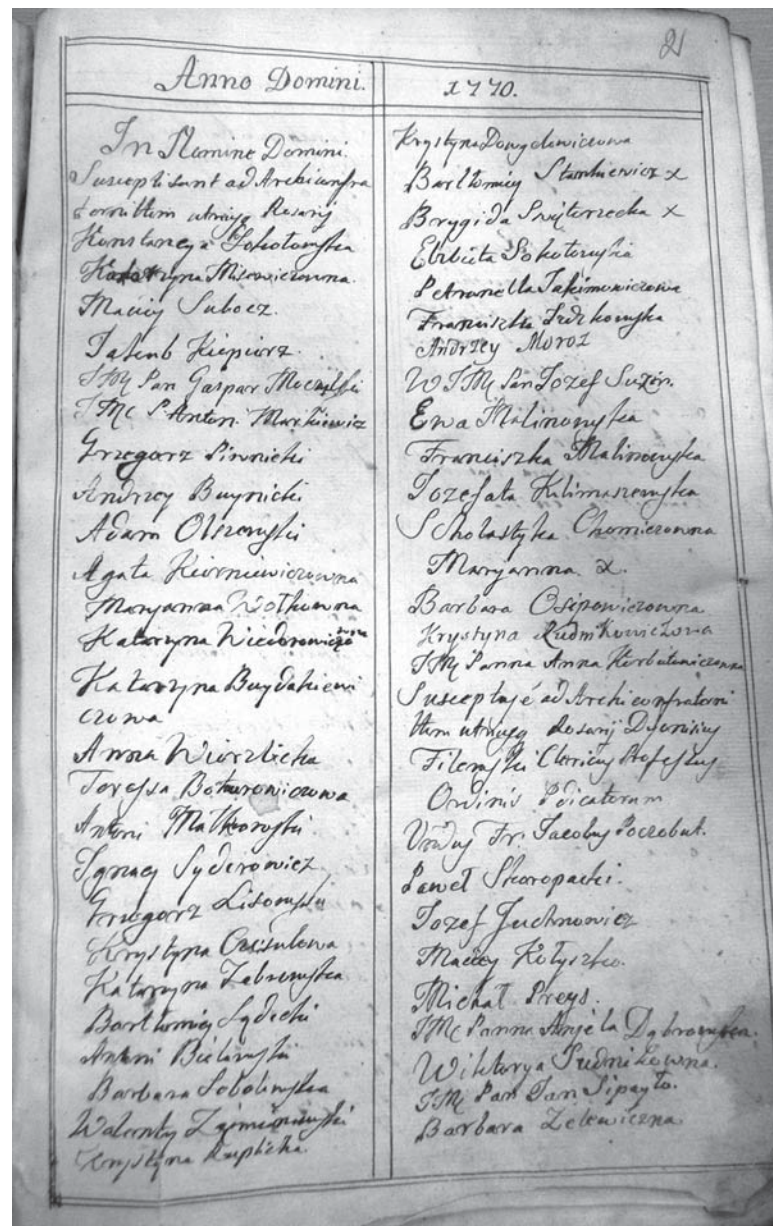 21
Anno Domini.
1770.
In Nomine Domini.
Suscepti sunt ad Archiconfra
ternittem utriusq Rosarij
Konstancya Sokołowska
Katarzyna Misiewiczowna.
Maciey Subocz.
Jakub Kiepiorz.
JMć Pan Gaspar
JMć P Antoni Markiewicz
Grzegorz Piwnicki
Andrzey Buynicki
Adam Olszewski
Agata Kierniewiczowna
Maryanna Wołkowna
Katarzyna
Katarzyna Buydakiewi
czowa
Anna Wierzbicka
Teressa Boturowiczowa
Antoni Małkowski
Ignacy Syderowicz
Grzegorz Lisowski
Krystyna
Katarzyna Zabrowska
Bartłomiey Sydecki
Antoni Bielinski
Barbara Sobolewska
Walenty
Krystyna Kuplicka.
Krystyna Dowgdowiczowa
Bartłomiey Stankiewicz x
Brygida Swiętorzecka x
Elzbieta Sokołowska
Petronella Jakimowiczowa
Franciszka Jodkowska
Andrzey Moroz
WJMć Pan Jozef Suzin.
Ewa Malinowska
Franciszka Malinowska
Jozefata Klimaszewska
Scholastyka Chomiczowna
Maryanna x.
Barbara Osipowiczowna
Krystyna Rudnikowiczowa
JMć Panna Anna Korbutowiczowna
Susceptus ÷ ad Archiconfraterni
ttem utriusq Rosarij Dyonisius
Filewski Clericus Professus
Ordinis Pdicatorum
Fr. Jacobus Poczobut.
Paweł Skoropacki.
Jozef Juchnowicz
Maciey Kołyszko.
Michał Preys.
JMć Panna Anjela Dąbrowska.
Wiktorya Dudnikowna.
JMć Pan Jan Sipayło.
Barbara Zelewiczna